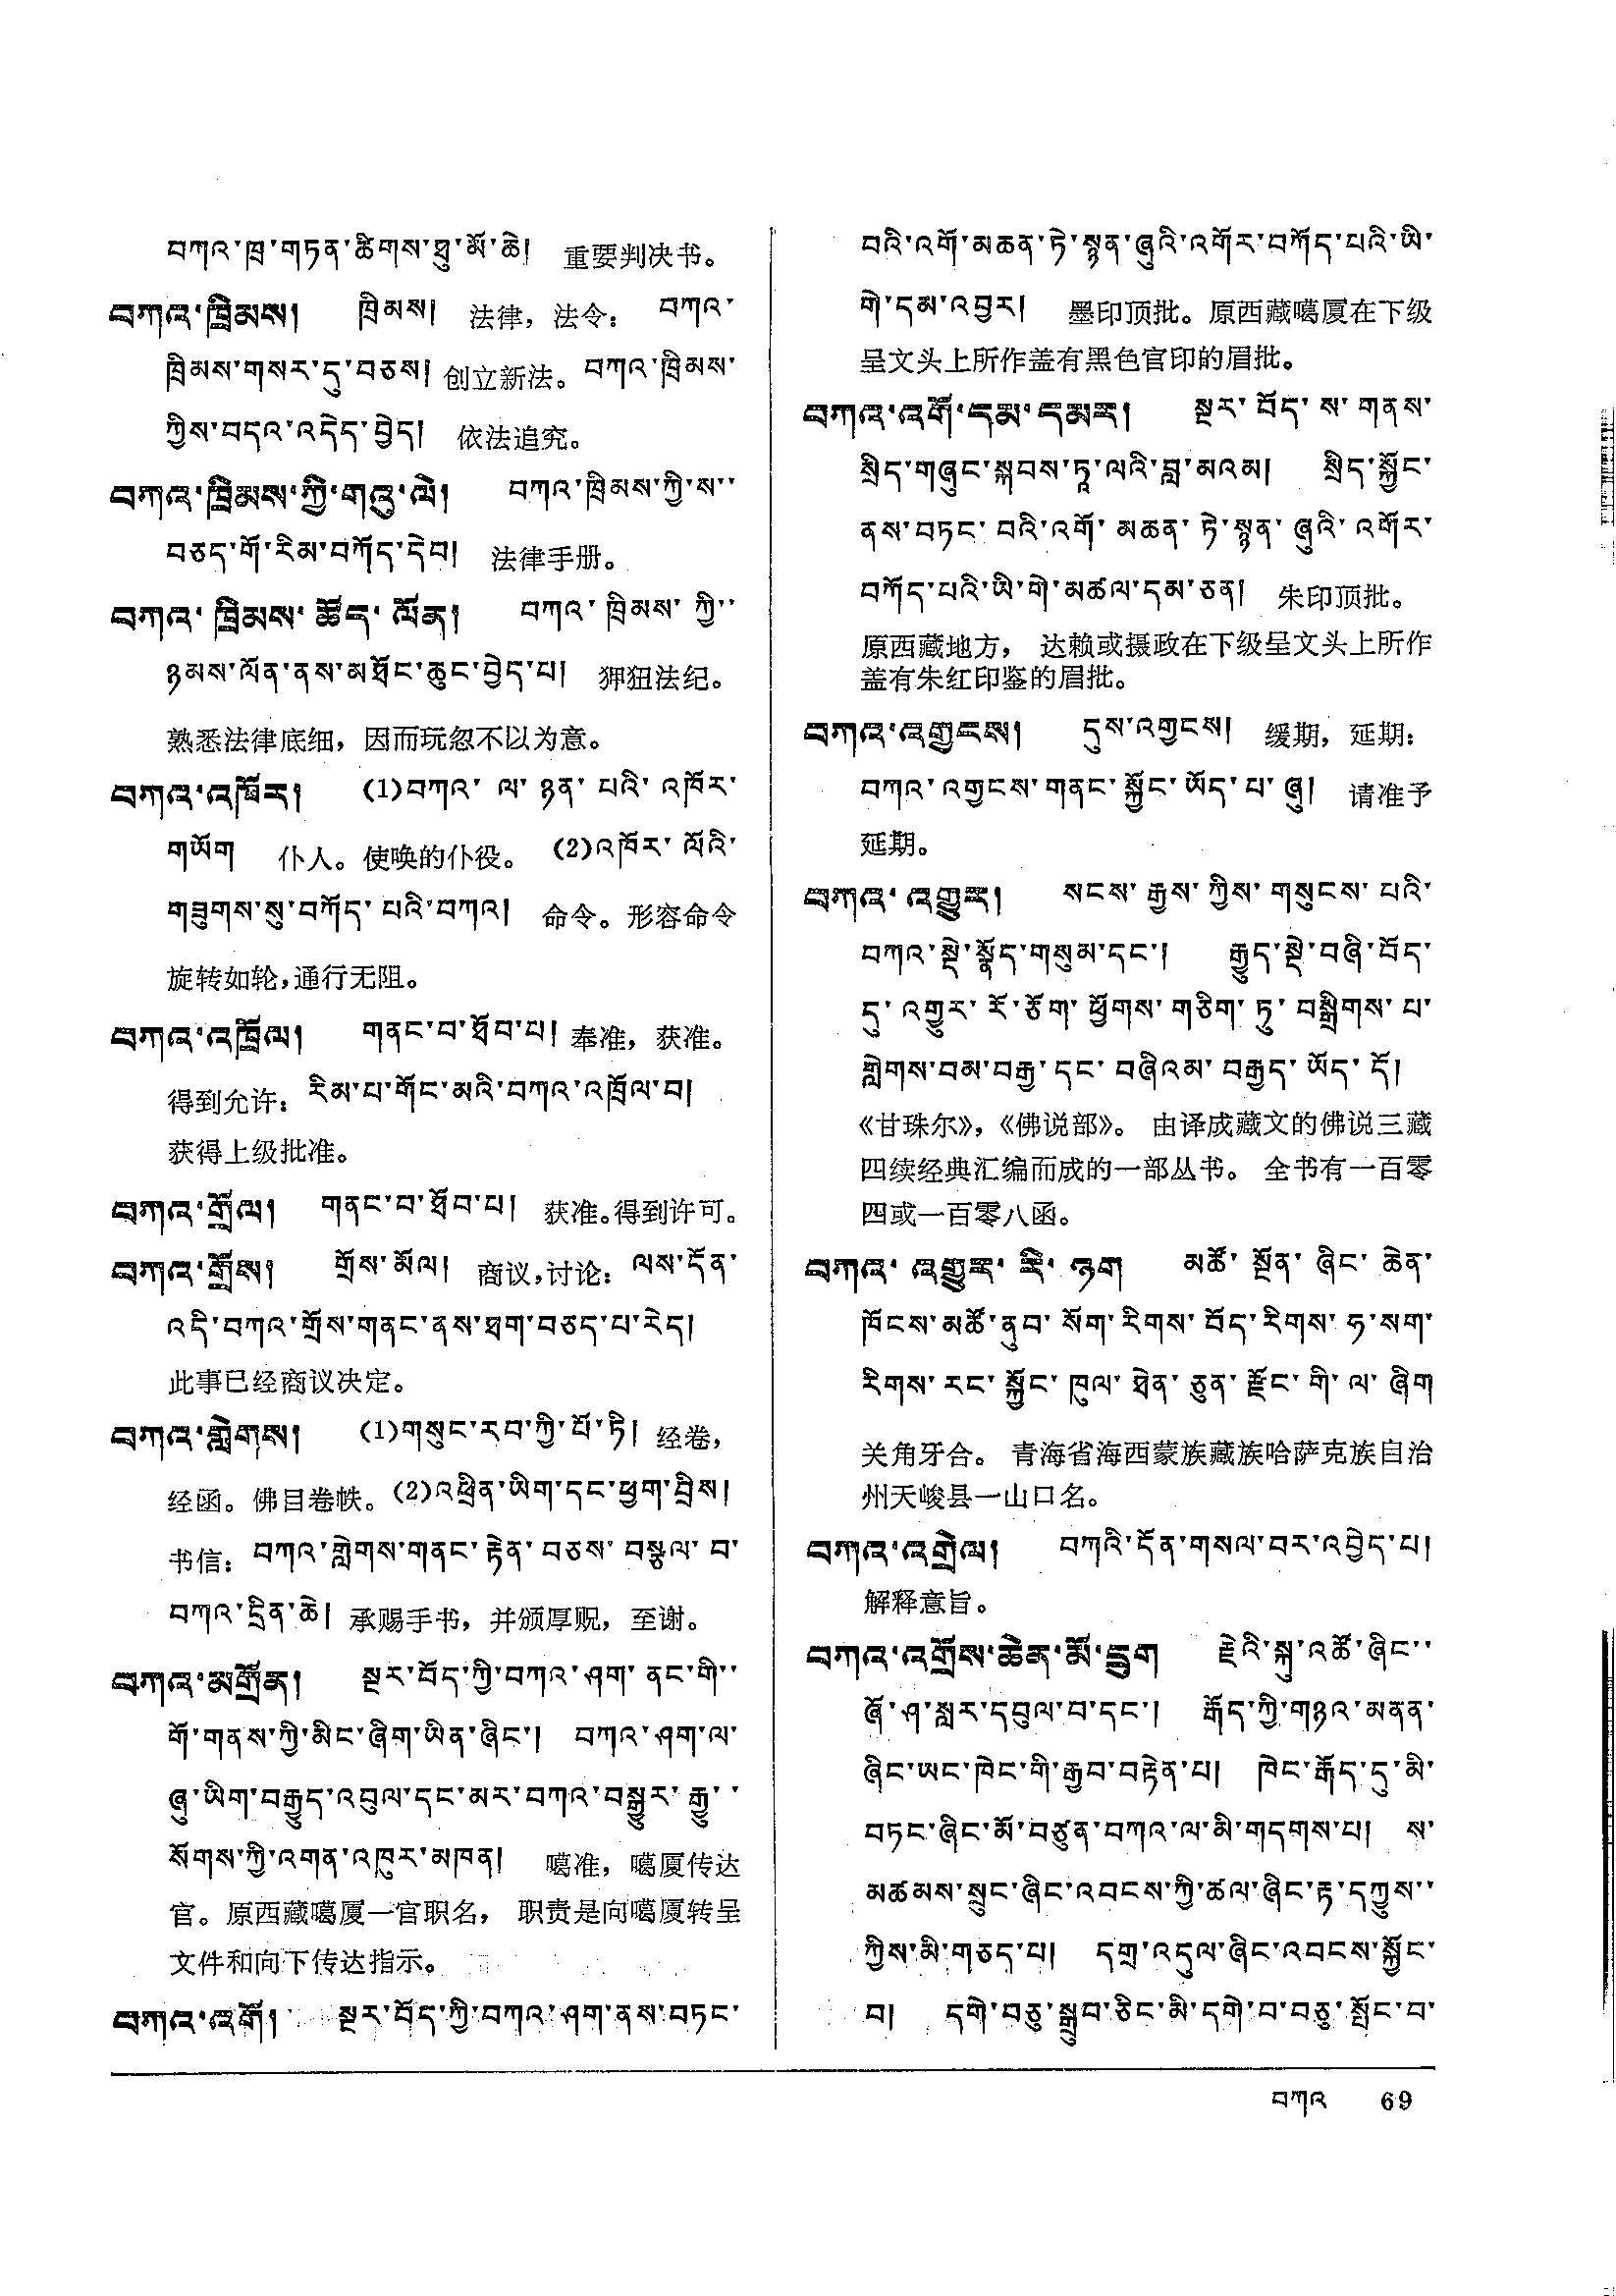 བཀའ་ཁྲ་གཏན་ཚིགས་ཐུ་མོ་ཆེ། 重要判决书。
བཀའ་ཁྲིམས། ཁྲིམས། 法律，法令： བཀའ་
ཁྲིམས་གསར་དུ་བཅས། 创立新法。 བཀའ་ཁྲིམས་
ཀྱིས་བདའ་འདེད་བྱེད། 依法追究。
བཀའ་ཁྲིམས་ཀྱི་གཟུ་ལེ། བཀའ་ཁྲིམས་ཀྱི་ས་་
བཅད་གོ་རིམ་བཀོད་དེབ། 法律手册。
བཀའ་ཁྲིམས་ཚོད་ལོན། བཀའ་ཁྲིམས་ཀྱི་་
ཉམས་ལོན་ནས་མཐོང་ཆུང་བྱེད་པ། 狎狃法纪。
熟悉法律底细，因而玩忽不以为意。
བཀའ་འཁོར། (1)བཀའ་ལ་ཉན་པའི་འཁོར་
གཡོག 仆人。使唤的仆役。 (2)འཁོར་ལོའི་
གཟུགས་སུ་བཀོད་པའི་བཀའ། 命令。形容命令
旋转如轮，通行无阻。
བཀའ་འཁྲོལ། གནང་བ་ཐོབ་པ། 奉准，获准。
得到允许： རིམ་པ་གོང་མའི་བཀའ་འཁྲོལ་བ།
获得上级批准。
བཀའ་གྲོལ། གནང་བ་ཐོབ་པ། 获准。得到许可。
བཀའ་གྲོས། གྲོས་མོལ། 商议，讨论： ལས་དོན་
འདི་བཀའ་གྲོས་གནང་ནས་ཐག་བཅད་པ་རེད།
此事已经商议决定。
བཀའ་གླེགས། (1)གསུང་རབ་ཀྱི་པོ་ཏི། 经卷，
经函。佛目卷帙。 (2)འཕྲིན་ཡིག་དང་ཕྱག་བྲིས།
书信： བཀའ་གླེགས་གནང་རྟེན་བཅས་བསྩལ་བ་
བཀའ་དྲིན་ཆེ། 承赐手书，并颁厚贶，至谢。
བཀའ་མགྲོན། སྔར་བོད་ཀྱི་བཀའ་ཤག་ནང་གི་་
གོ་གནས་ཀྱི་མིང་ཞིག་ཡིན་ཞིང་། བཀའ་ཤག་ལ་
ཞུ་ཡིག་བརྒྱུད་འབུལ་དང་མར་བཀའ་བསྒྱུར་རྒྱུ་་
སོགས་ཀྱི་འགན་འཁུར་མཁན། 噶准，噶厦传达
官。原西藏噶厦一官职名， 职责是向噶厦转呈
文件和向下传达指示。
བཀའ་འགོ། སྔར་བོད་ཀྱི་བཀའ་ཤག་ནས་བཏང་
བའི་འགོ་མཆན་ཏེ་སྙན་ཞུའི་འགོར་བཀོད་པའི་ཡི་
གེ་དམ་འབྱར། 墨印顶批。原西藏噶厦在下级
呈文头上所作盖有黑色官印的眉批。
བཀའ་འགོ་དམ་དམར། སྔར་བོད་ས་གནས་
སྲིད་གཞུང་སྐབས་ཏཱ་ལའི་བླ་མའམ། སྲིད་སྐྱོང་
ནས་བཏང་བའི་འགོ་མཆན་ཏེ་སྙན་ཞུའི་འགོར་
བཀོད་པའི་ཡི་གེ་མཚལ་དམ་ཅན། 朱印顶批。
原西藏地方， 达赖或摄政在下级呈文头上所作
盖有朱红印鉴的眉批。
བཀའ་འགྱངས། དུས་འགྱངས། 缓期，延期：
བཀའ་འགྱངས་གནང་སྐྱོང་ཡོད་པ་ཞུ། 请准予
延期。
བཀའ་འགྱུར། སངས་རྒྱས་ཀྱིས་གསུངས་པའི་
བཀའ་སྡེ་སྣོད་གསུམ་དང་། རྒྱུད་སྡེ་བཞི་བོད་
དུ་འགྱུར་རོ་ཅོག་ཕྱོགས་གཅིག་ཏུ་བསྒྲིགས་པ་
གླེགས་བམ་བརྒྱ་དང་བཞིའམ་བརྒྱད་ཡོད་དོ།
《甘珠尔》，《佛说部》。 由译成藏文的佛说三藏
四续经典汇编而成的一部丛书。 全书有一百零
四或一百零八函。
བཀའ་འགྱུར་རི་ཉག མཚོ་སྔོན་ཞིང་ཆེན་
ཁོངས་མཚོ་ནུབ་སོག་རིགས་བོད་རིགས་ཧ་སག་
རིགས་རང་སྐྱོང་ཁུལ་ཐེན་ཅུན་རྫོང་གི་ལ་ཞིག
关角牙合。 青海省海西蒙族藏族哈萨克族自治
州天峻县一山口名。
བཀའ་འགྲེལ། བཀའི་དོན་གསལ་བར་འབྱེད་པ།
解释意旨。
བཀའ་འགྲོས་ཆེན་མོ་དྲུག རྗེའི་སྐུ་འཚོ་ཞིང་་
ཞོ་ཤ་སླར་དབུལ་བ་དང་། རྒོད་ཀྱི་གཉའ་མནན་
ཞིང་ཡང་ཁེང་གི་རྒྱབ་བརྟེན་པ། ཁེང་རྒོད་དུ་མི་
བཏང་ཞིང་མོ་བཙུན་བཀའ་ལ་མི་གདགས་པ། ས་
མཚམས་སྲུང་ཞིང་འབངས་ཀྱི་ཚལ་ཞིང་རྟ་དཀྱུས་་
ཀྱིས་མི་གཅད་པ། དགྲ་འདུལ་ཞིང་འབངས་སྐྱོང་
བ། དགེ་བཅུ་སྒྲུབ་ཅིང་མི་དགེ་བ་བཅུ་སྤོང་བ་
བཀའ 69